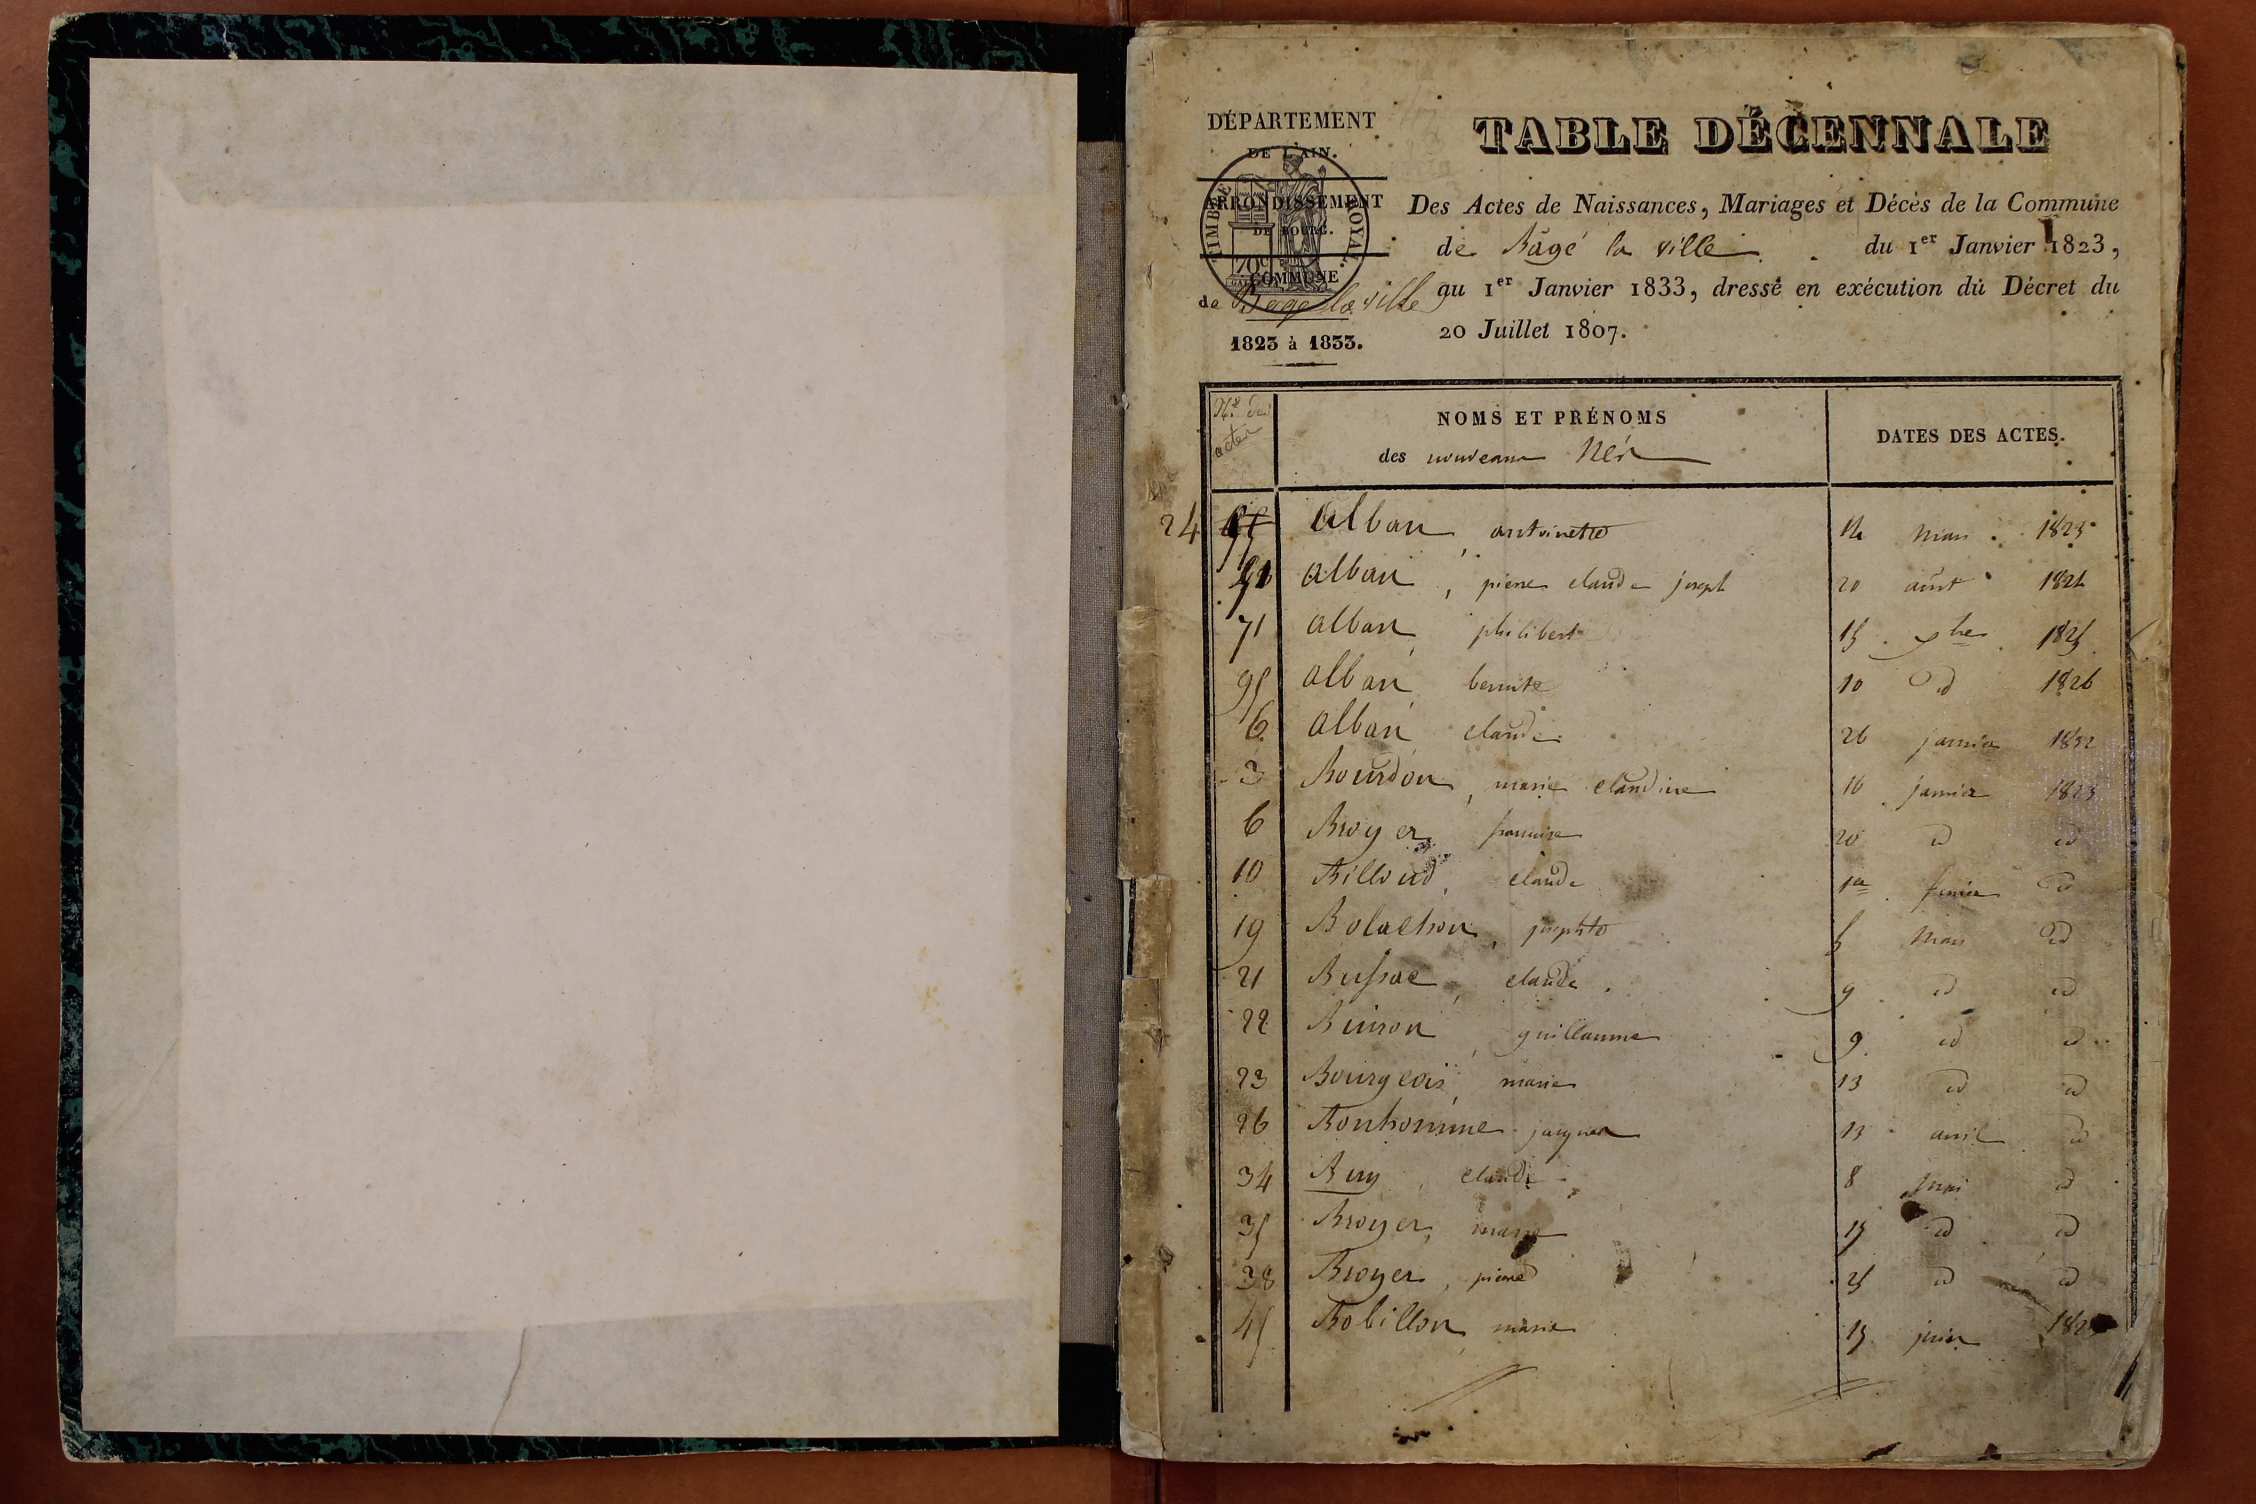 DÉPARTEMENT
DE L'AIN.
ARRONDISSEMENT
DE BOURG.
COMMUNE
de Bagé la ville
1823 à 1833.
TIMBRE ROYAL
70c
TABLE DÉCENNALE
Des Actes de Naissances, Mariages et Décès de la Commune
de Bâgé la ville du 1er Janvier 1823,
au 1er Janvier 1833, dressé en exécution du Décret du
20 Juillet 1807.
Nos des actes
NOMS ET PRÉNOMS
des nouveaux Nés
DATES DES ACTES.
24 alban, antoinette 14 mars 1823
alban, pierre claude joseph 20 août 1824
71 alban, philibert 15 xbre 1825
95 alban benoite 10 id 1826
6 alban claude 26 janvier 1832
3 Bourdon, marie claudine 16 janvier 1823
6 Broyer, francoise 20 id id
10 Billoud, claude 1er fevrier id
19 Bolachon, josephte 5 mars id
21 Bussac, claude 9 id id
22 Buiron, guillaume 9 id id
23 Bourgeois, marie 13 id id
26 Bonhomme jacques 13 avril id
34 Buy, claude 8 mai id
35 Broyer, marie 15 id id
38 Broyer, pierre 25 id id
45 Bobillon, marie 15 juin 1823